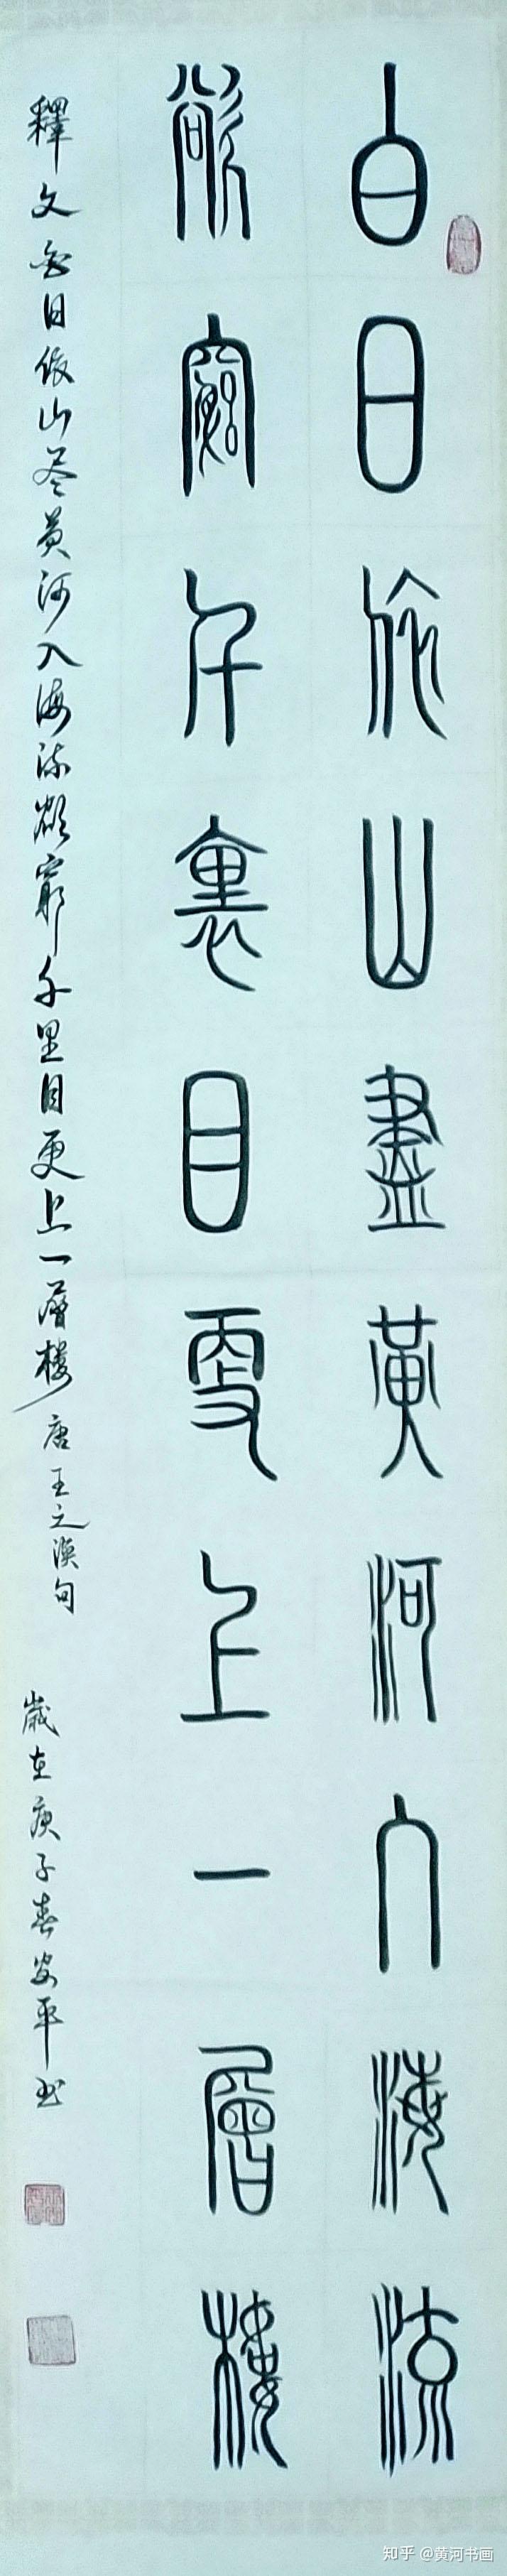 白日依山盡黃河入海流
欲窮千里目更上一層樓
釋文 白日依山尽黄河入海流欲窮千里目更上一層楼 唐王之渙句
歲在庚子春安平书
知乎 @黄河书画